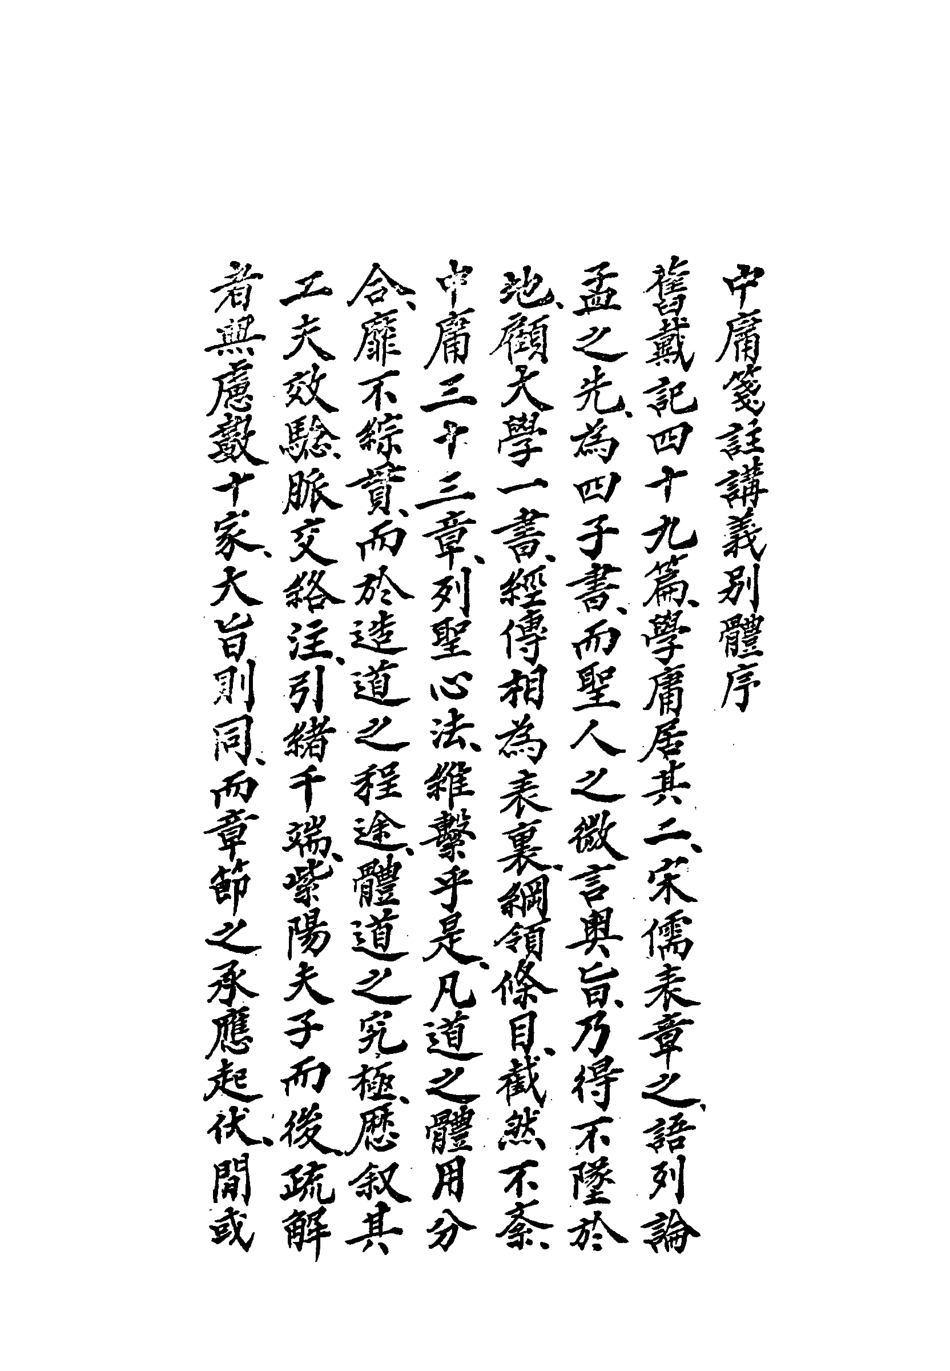 中庸箋註講義別體序
舊戴記四十九篇、學庸居其二、宋儒表章之、語列論
孟之先、為四子書、而聖人之微言奧旨、乃得不墜於
地、顧大學一書、經傳相為表裏、綱領條目、截然不紊、
中庸三十三章、列聖心法、維繫乎是、凡道之體用分
合、靡不綜貫、而於造道之程途、體道之究極、歷叙其
工夫效驗、脈交絡注、引緒千端、紫陽夫子而後、疏解
者無慮數十家、大旨則同、而章節之承應起伏、間或